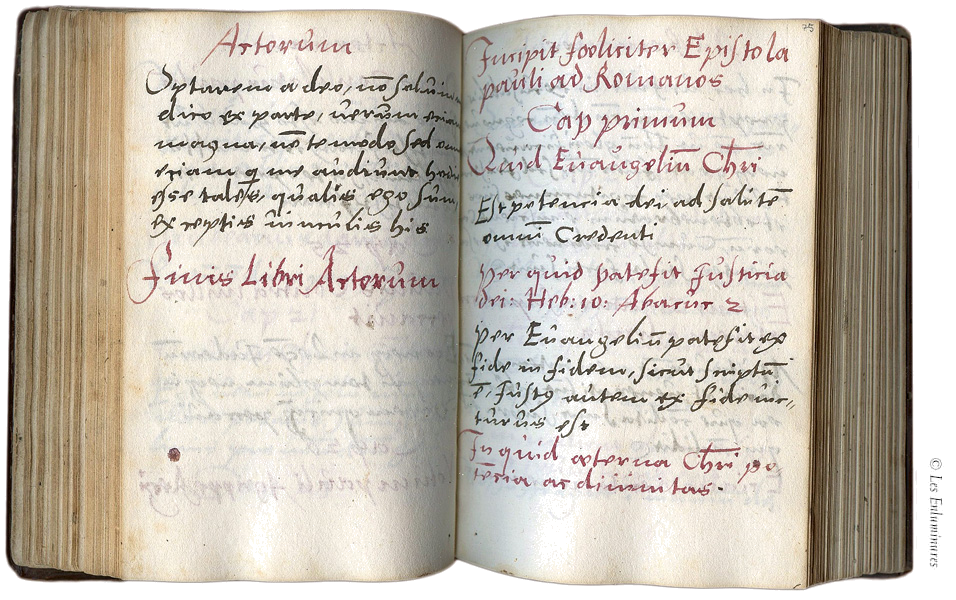 Actorum
Optarem a deo, nō solum
dico ex parte, uerum etiam
magna, nō te modo sed om
etiam q̄ me audiunt hodie
esse tales, qualis ego sum
exceptis uinculis his
Finis Libri Actorum
75
Incipit fœliciter Epistola
pauli ad Romanos
Cap primum
Quid Euangeliū Chr̄i
Est potencia dei ad salutē
omni Credenti
Per quid patefit Justicia
dei. Heb: 10: Abacuc 2
Per Euangeliū patefit ex
fide in fidem, sicut scriptū
ē, Justꝰ autem ex fide uic-
turus est
In quid æterna Chr̄i po
tēcia ac diuinitas.
© Les Enluminures